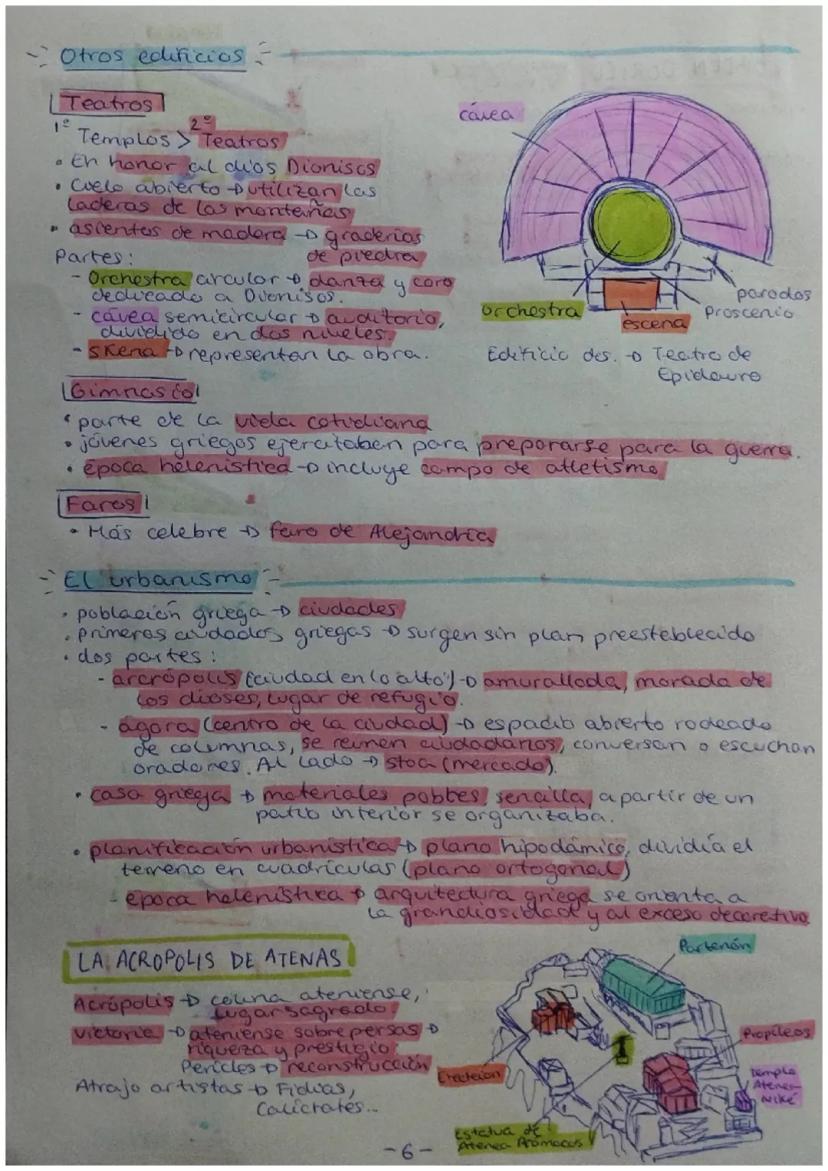 Otros edificios
Teatros
1º Templos > 2º Teatros
• En honor al dios Dionisos
• Cielo abierto → utilizan las
laderas de las montañas
• asientos de madera → graderías
de piedra
Partes:
- Orchestra circular → danza y coro
dedicado a Dionisos.
- cávea semicircular → auditorio,
dividido en dos niveles.
- Skena → representan la obra.
cávea
orchestra
escena
Proscenio
parodos
Edificio des. → Teatro de
Epidauro
Gimnasio
• parte de la vida cotidiana
• jóvenes griegos ejercitaban para prepararse para la guerra.
• época helenística → incluye campo de atletismo
Faros
• Más celebre → faro de Alejandría
El urbanismo
• población griega → ciudades
• primeras ciudades griegas → surgen sin plan preestablecido
• dos partes:
- arcrópolis (ciudad en lo alto) → amurallada, morada de
los dioses, lugar de refugio.
- ágora (centro de la ciudad) → espacio abierto rodeado
de columnas, se reunen ciudadanos, conversan o escuchan
oradores. Al lado → stoa (mercado).
• casa griega → materiales pobres, sencilla, a partir de un
patio interior se organizaba.
• planificación urbanística → plano hipodámico, dividía el
terreno en cuadrículas (plano ortogonal)
- época helenística → arquitectura griega se orienta a
la grandiosidad y al exceso decorativo
LA ACROPOLIS DE ATENAS
Acrópolis → colina ateniense,
lugar sagrado
Victoria → ateniense sobre persas →
riqueza y prestigio
Pericles → reconstrucción
Atrajo artistas → Fidias,
Calícrates...
Partenón
Propíleos
Templo
Atenea
Niké
Erecteion
Estatua de
Atenea Promacos
-6-